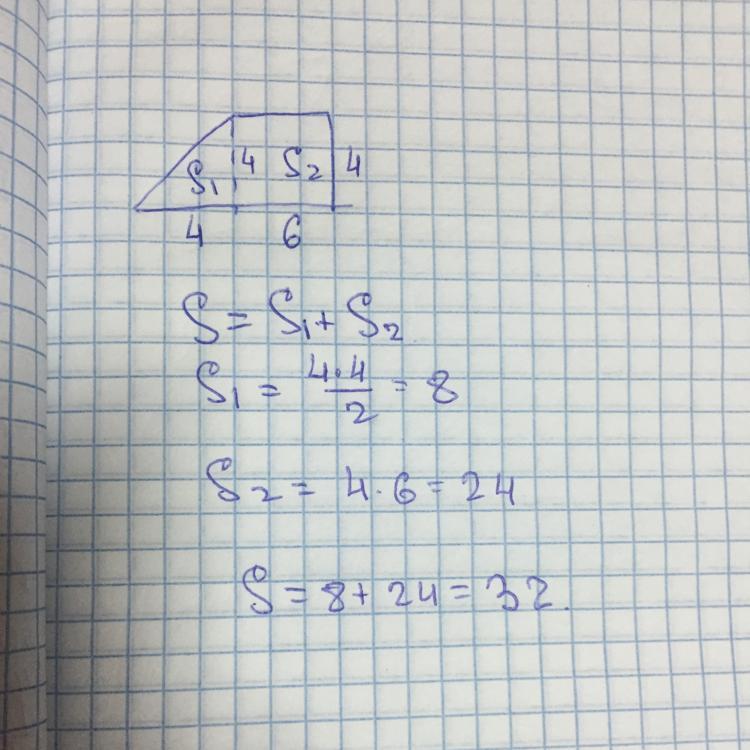 S₁ 4 S₂ 4
4 6
S = S₁ + S₂
S₁ = 4·4/2 = 8
S₂ = 4·6 = 24
S = 8 + 24 = 32.